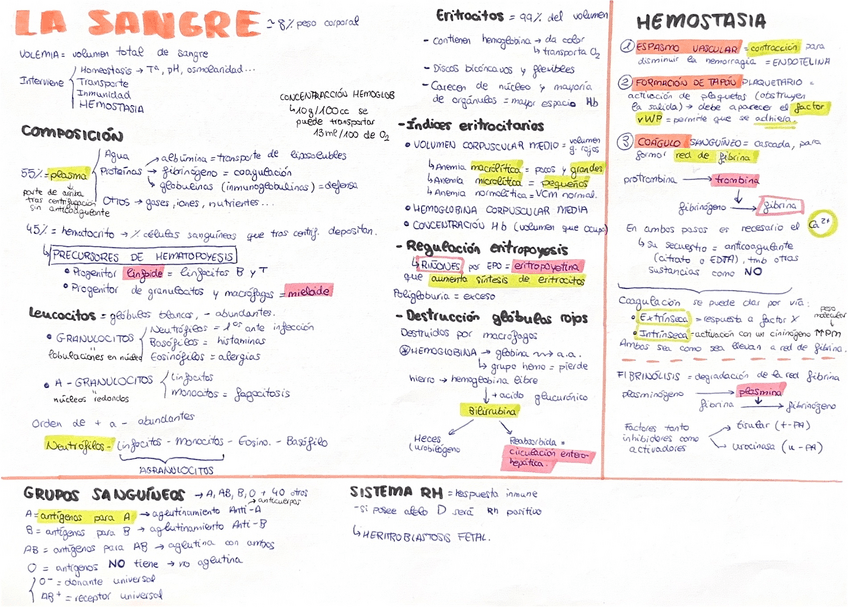 LA SANGRE ~ 8% peso corporal
VOLEMIA = volumen total de sangre
Interviene
Homeostasis → Tª, pH, osmolaridad...
Transporte
Inmunidad
HEMOSTASIA
CONCENTRACIÓN HEMOGLOB
↳ 10g/100cc se
puede transportar
13ml/100 de O2
COMPOSICIÓN
55% = plasma
parte de arriba
tras centrifugación
sin anticoagulante
Agua
Proteínas
→ albúmina = transporte de liposolubles
→ fibrinógeno = coagulación
→ globulinas (inmunoglobulinas) = defensa
Otros → gases, iones, nutrientes...
45% = hematocrito → % células sanguíneas que tras centrif. depositan.
↳ PRECURSORES DE HEMATOPOYESIS
• Progenitor linfoide = linfocitos B y T
• Progenitor de granulocitos y macrófagos = mieloide
Leucocitos = glóbulos blancos, - abundantes.
• GRANULOCITOS
lobulaciones en núcleo
Neutrófilos = 1os ante infección
Basófilos = histaminas
Eosinófilos = alergias
• A - GRANULOCITOS
núcleos redondos
linfocitos
monocitos = fagocitosis
Orden de + a - abundantes
Neutrófilos - linfocitos - Monocitos - Eosino. - Basófilo
AGRANULOCITOS
Eritrocitos = 99% del volumen
- Contienen hemoglobina → da color
↳ transporta O2
- Discos bicóncavos y flexibles
- Carecen de núcleo y mayoría
de orgánulos = mayor espacio Hb
- Índices eritrocitarios
• VOLUMEN CORPUSCULAR MEDIO = volumen
g. rojos
↳ Anemia macrolítica = pocos y grandes
↳ Anemia microlítica = pequeños
↳ Anemia normolítica = VCM normal.
• HEMOGLOBINA CORPUSCULAR MEDIA
• CONCENTRACIÓN Hb (volumen que ocupa)
- Regulación eritropoyesis
↳ RIÑONES por EPO = eritropoyetina
que aumenta síntesis de eritrocitos
Poligloburia = exceso
- Destrucción glóbulos rojos
Destruidos por macrófagos
HEMOGLOBINA → globina → a.a.
↳ grupo hemo = pierde
hierro → hemoglobina libre
↓ + acido glucurónico
Bilirrubina
Heces
(urobilógeno
Reabsorbida =
circulación entero-
hepática.
HEMOSTASIA
① ESPASMO VASCULAR = contracción para
disminuir la hemorragia = ENDOTELINA
② FORMACIÓN DE TAPÓN PLAQUETARIO =
activación de plaquetas (obstruyen
la salida) → debe aparecer el factor
vWP = permite que se adhiera.
③ COÁGULO SANGUÍNEO = cascada, para
formar red de fibrina
protrombina → trombina
fibrinógeno → fibrina
En ambos pasos es necesario el Ca2+
↳ su secuestro = anticoagulante
(citrato o EDTA), tmb otras
sustancias como NO
Coagulación se puede dar por vía:
• Extrínseca = respuesta a factor X
• Intrínseca - activación con un cininógeno ↑↑Pm
peso
molecular
Ambas sea como sea llevan a red de fibrina.
FIBRINÓLISIS = degradación de la red fibrina
plasminógeno → plasmina
fibrina → fibrinógeno
Factores tanto
inhibidores como
activadores
→ tisular (t-PA)
→ urocinasa (u-PA)
GRUPOS SANGUÍNEOS → A, AB, B, O + 40 otros
anticuerpos
A = antígenos para A → aglutinamiento Anti-A
B = antígenos para B → aglutinamiento Anti-B
AB = antígenos para AB → aglutina con ambos
O = antígenos NO tiene → no aglutina
O- = donante universal
AB+ = receptor universal
SISTEMA RH = respuesta inmune
- si posee alelo D será Rh positivo
↳ HERITROBLASTOSIS FETAL.